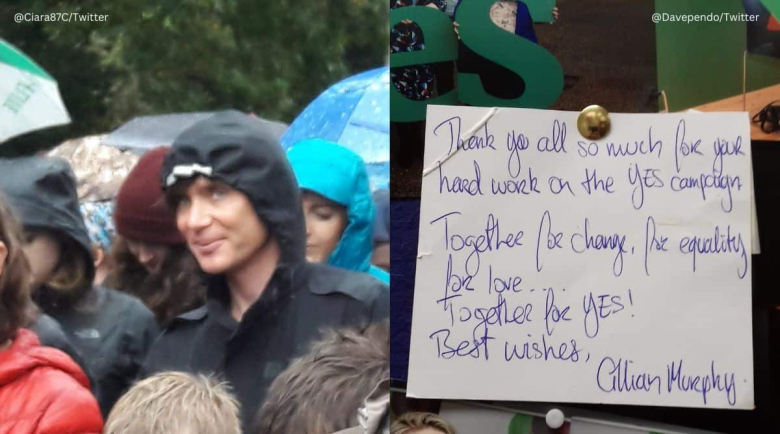 @Ciara87C/Twitter
@Davependo/Twitter
es
Thank you all so much for your
hard work on the YES campaign
Together for change, for equality
for love...
Together for YES!
Best wishes,
Cillian Murphy.